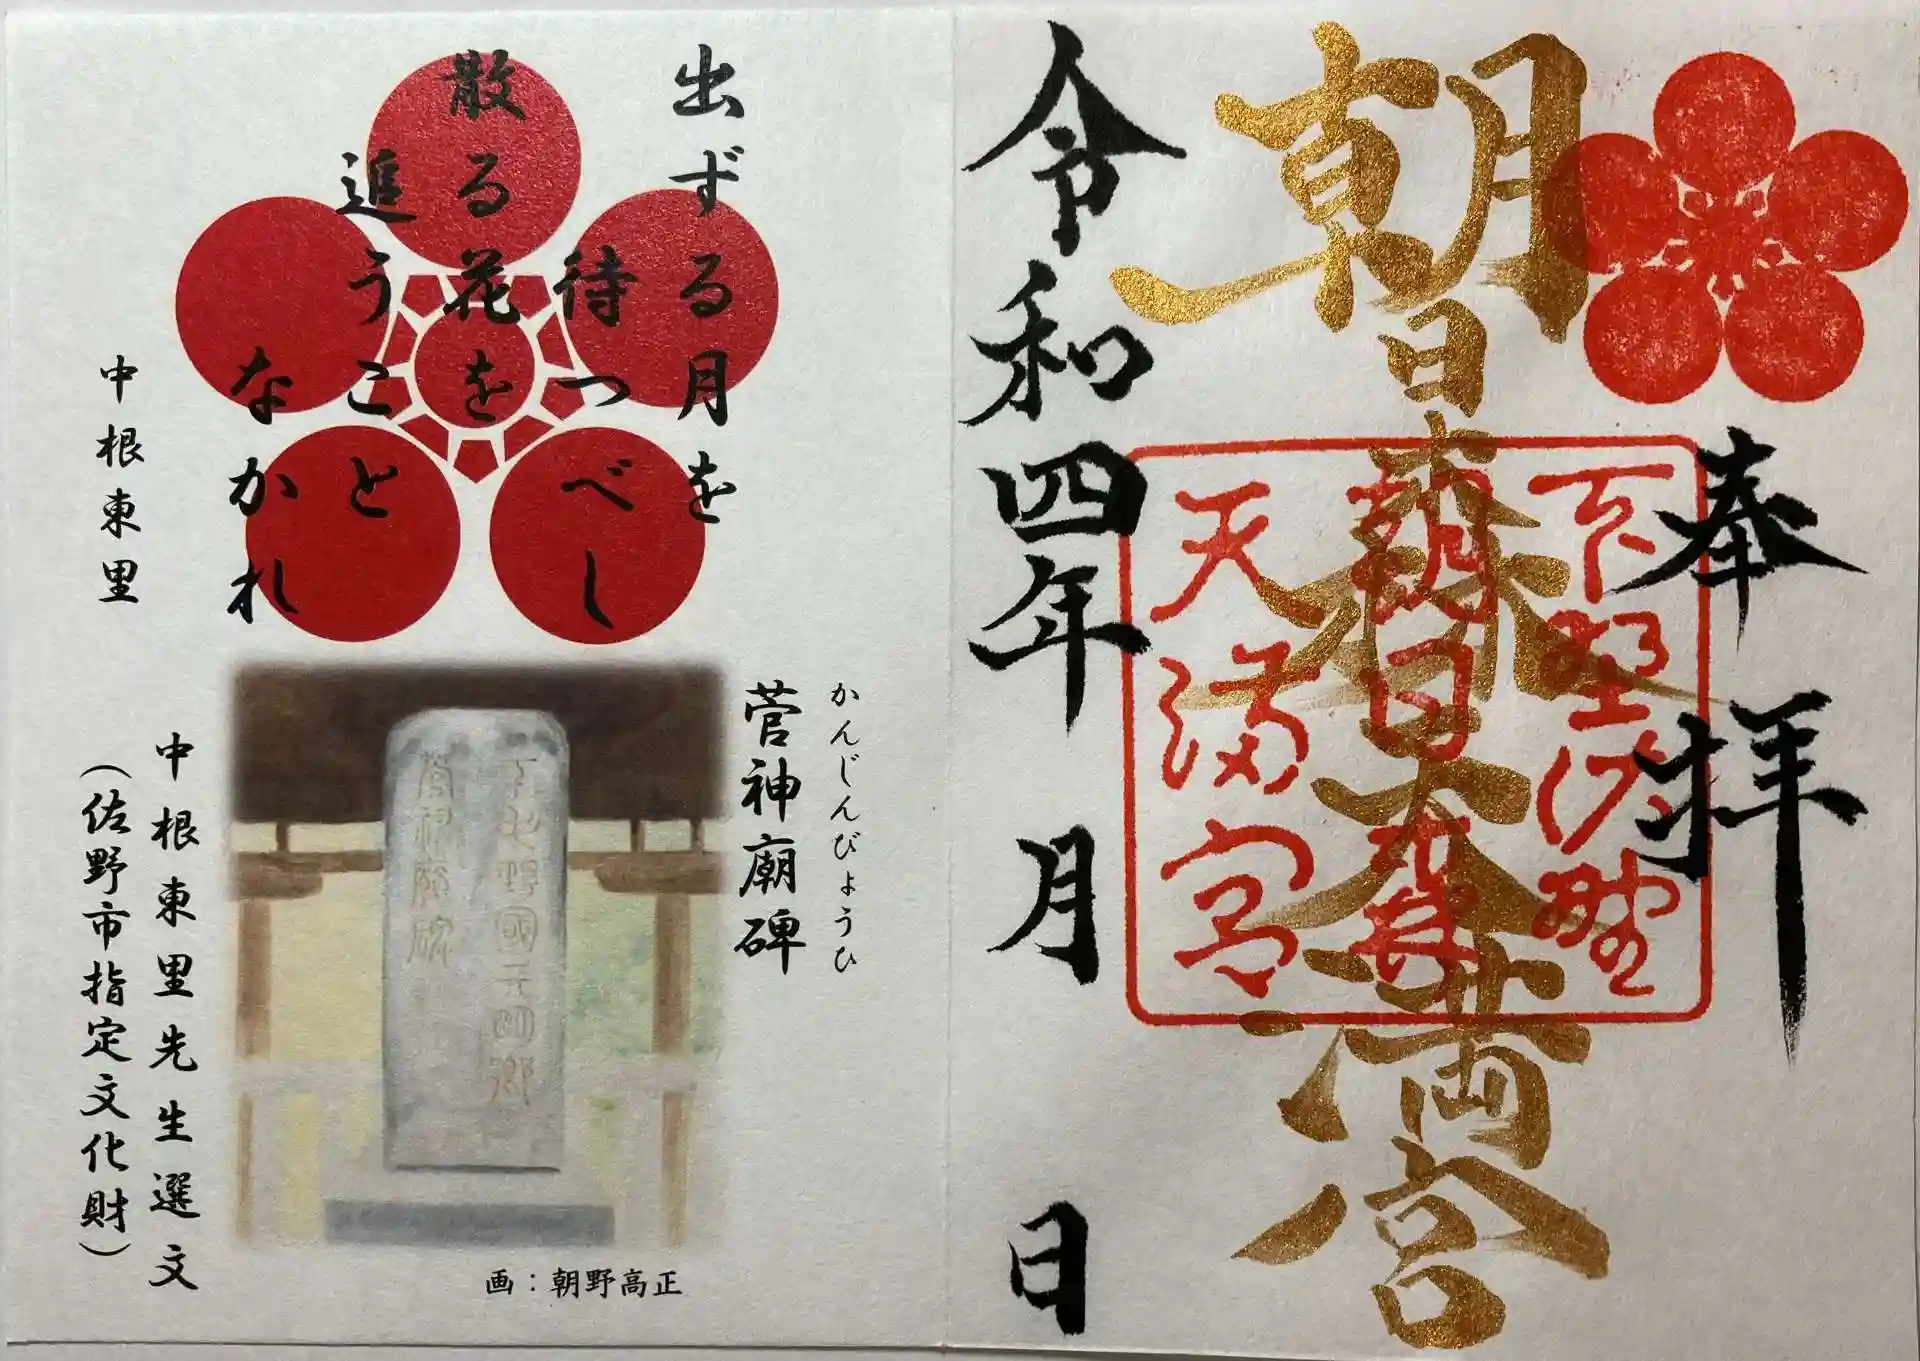 奉拝
朝日森天満宮
下野佐野
朝日森
天満宮
令和四年 月 日
出ずる月を
待つべし
散る花を
追うこと
なかれ
中根東里
かんじんびょうひ
菅神廟碑
下毛野國天明郷
菅神廟碑
画：朝野高正
中根東里先生選文
（佐野市指定文化財）